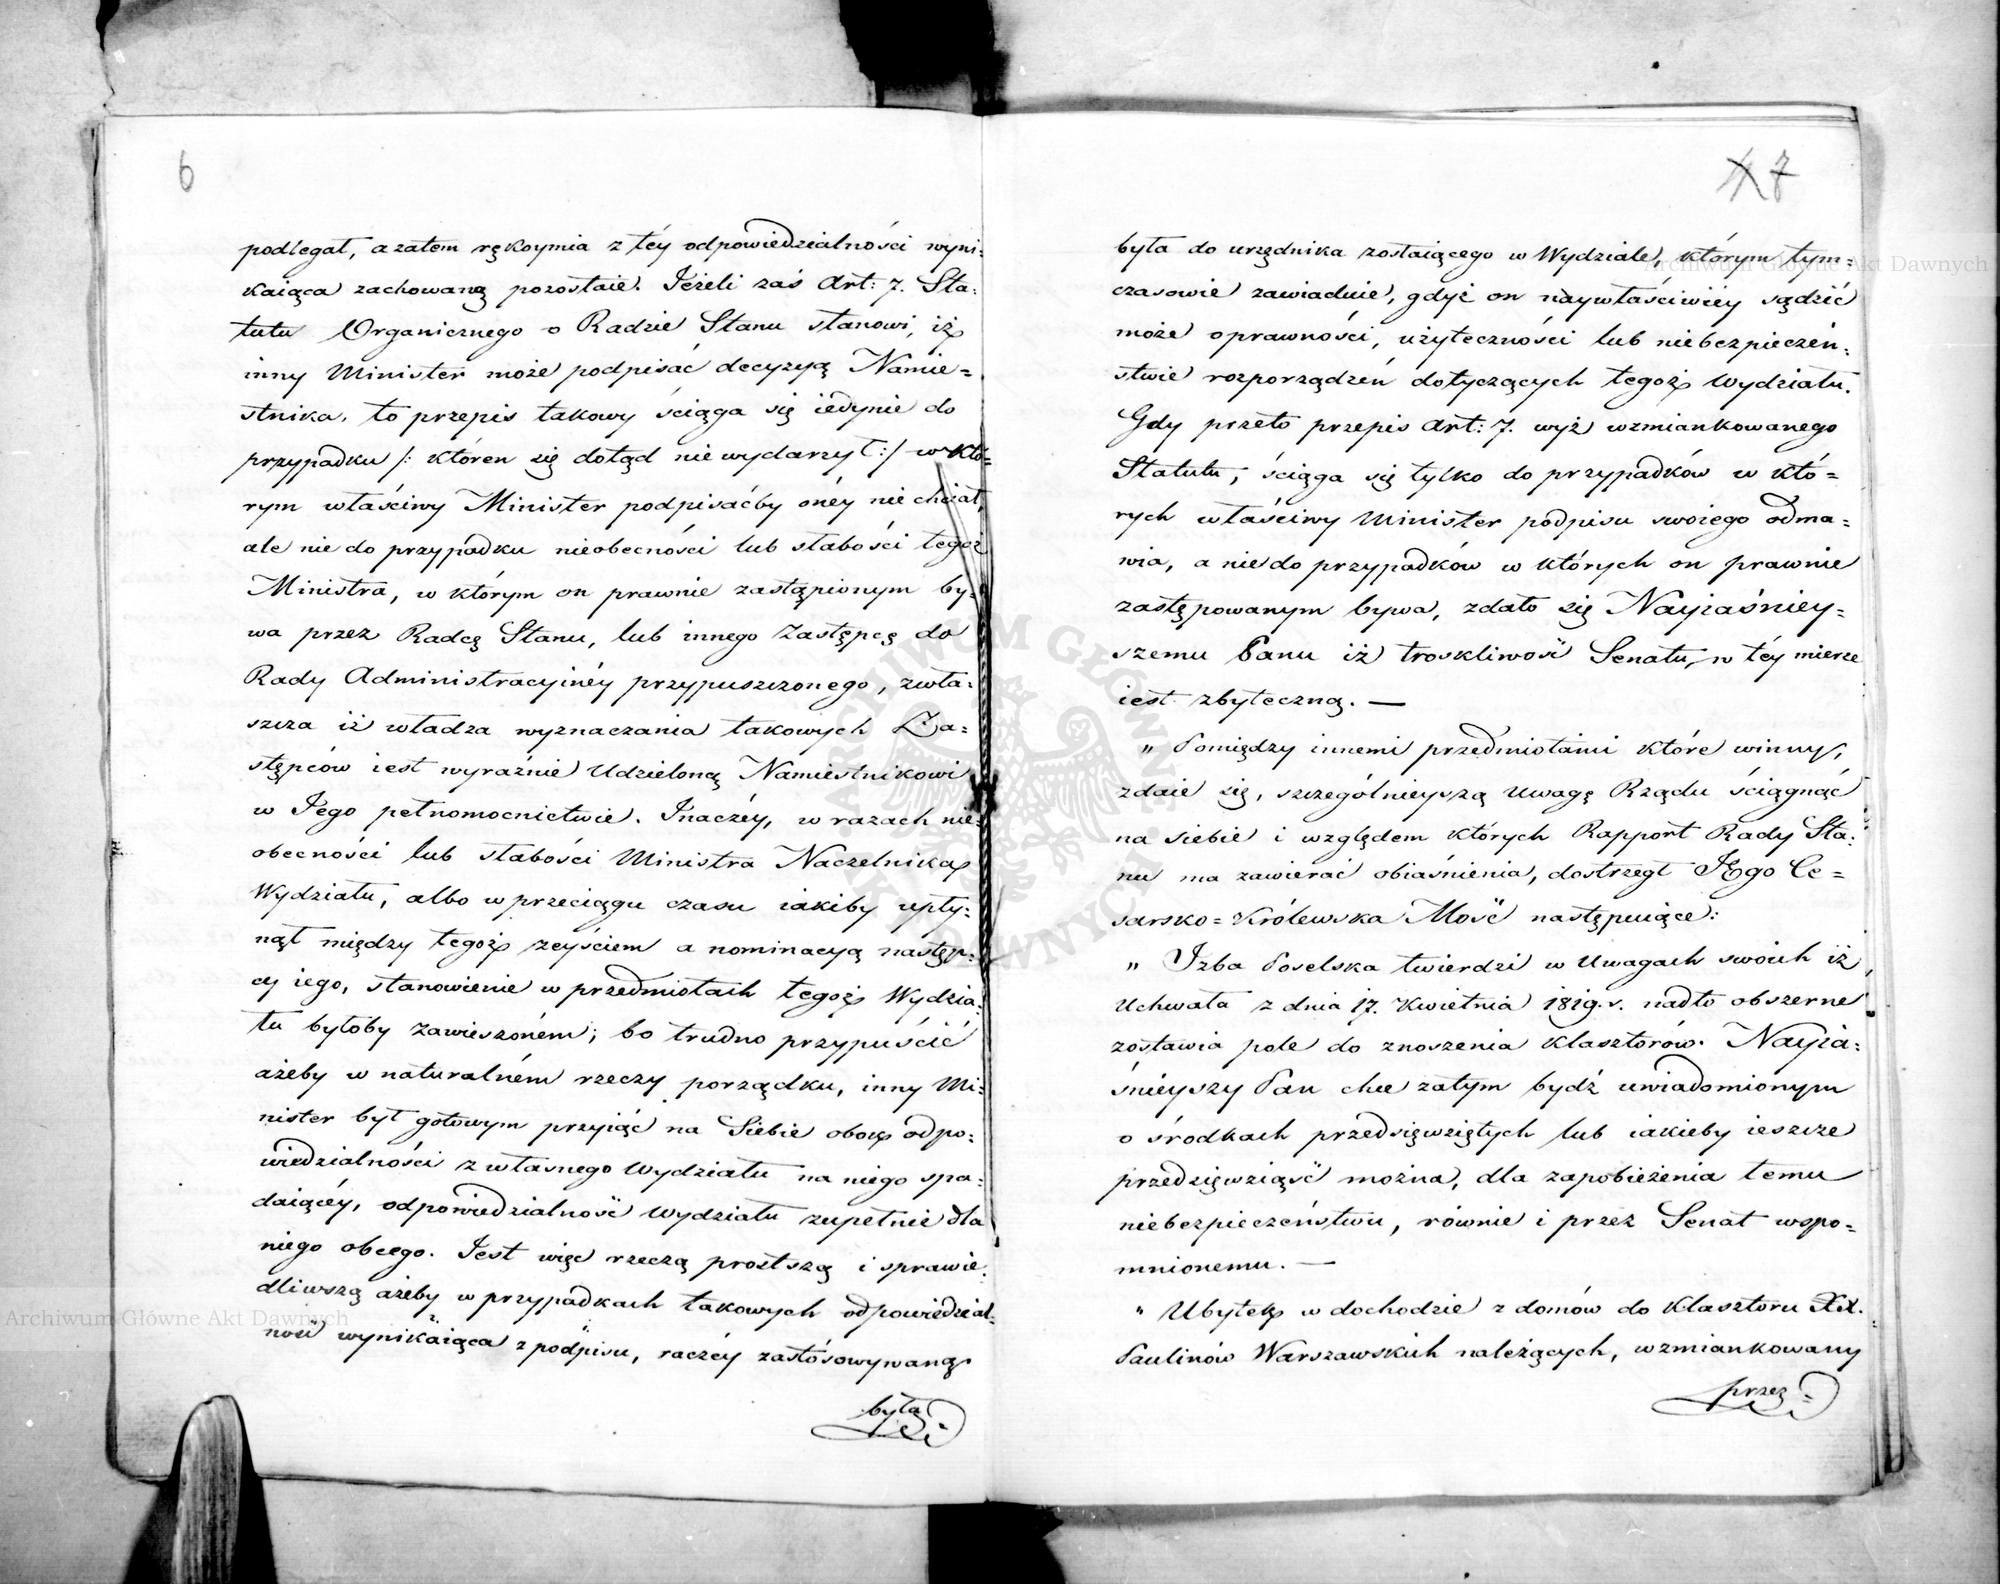 6
podlegał, a zatem rękoymia z téy odpowiedzialności wyni-
kaiąca zachowaną pozostaie. Jeżeli zaś Art: 7. Sta-
tutu Organicznego o Radzie Stanu stanowi, iż
inny Minister może podpisać decyzyą Namie=
stnika, to przepis takowy ściąga się iedynie do
przypadku /: któren się dotąd nie wydarzył :/ w któ-
rym właściwy Minister podpisaćby onéy nie chciał,
ale nie do przypadku nieobecności lub słabości tegoż
Ministra, w którym on prawnie zastąpionym by-
wa przez Radcę Stanu, lub innego Zastępcę do
Rady Administracyinéy przypuszczonego, zwła-
szcza iż władza wyznaczania takowych Za=
stępców iest wyraźnie Udzieloną Namiestnikowi
w Jego pełnomocnictwie. Inaczéy, w razach nie-
obecności lub słabości Ministra Naczelnika
Wydziału, albo w przeciągu czasu iakiby upły-
nął między tegoż zeyściem a nominacyą następ-
cy iego, stanowienie w przedmiotach tegoż Wydzia-
łu byłoby zawieszoném; bo trudno przypuścić
ażeby w naturalném rzeczy porządku, inny Mi-
nister był gotowym przyiąć na Siebie obok odpo-
wiedzialności z własnego Wydziału na niego spa-
daiącéy, odpowiedzialność Wydziału zupełnie dla
niego obcego. Jest więc rzeczą prostszą i sprawie-
dliwszą ażeby w przypadkach takowych odpowiedzial-
ność wynikaiąca z podpisu, raczéy zastósowywaną
była
7
była do urzędnika zostaiącego w Wydziale, którym tym-
czasowie zawiaduie, gdyż on naywłaściwiéy sądzić
może o prawności, użyteczności lub niebezpieczeń-
stwie rozporządzeń dotyczących tegoż Wydziału.
Gdy przeto przepis Art: 7. wyż wzmiankowanego
Statutu, ściąga się tylko do przypadków w któ=
rych właściwy Minister podpisu swoiego odma=
wia, a nie do przypadków w których on prawnie
zastępowanym bywa, zdało się Nayiaśniey=
szemu Panu iż troskliwość Senatu, w téy mierze
iest zbyteczną. —
„ Pomiędzy innemi przedmiotami które winny,
zdaie się, szczególnieyszą Uwagę Rządu ściągnąć
na siebie i względem których Rapport Rady Sta-
nu ma zawierać obiaśnienia, dostrzegł Jego Ce=
sarsko=Królewska Mość następuiące:
„ Izba Poselska twierdzi w Uwagach swoich iż
Uchwała z dnia 17. Kwietnia 1819. r. nadto obszerne
zostawia pole do znoszenia klasztorów. Nayia-
śnieyszy Pan chce zatym bydź uwiadomionym
o środkach przedsięwziętych lub iakieby ieszcze
przedsięwziąść można, dla zapobieżenia temu
niebezpieczeństwu, równie i przez Senat wspo=
mnionemu. —
„ Ubytek w dochodzie z domów do Klasztoru XX.
Paulinów Warszawskich należących, wzmiankowany
przez
Archiwum Główne Akt Dawnych
Archiwum Główne Akt Dawnych
ARCHIWUM GŁÓWNE AKT DAWNYCH